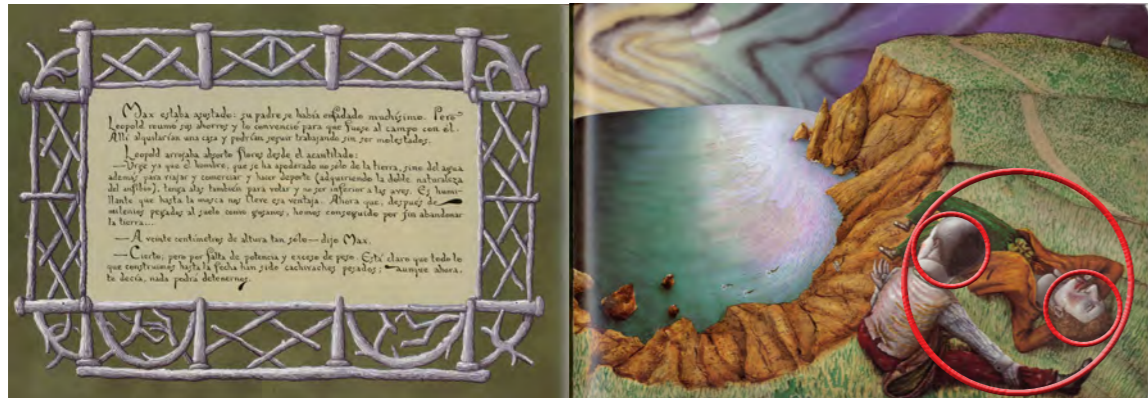 Max estaba asustado: su padre se había enfadado muchísimo. Pero
Leopold reunió sus ahorros y lo convenció para que fuese al campo con él.
Allí alquilarían una casa y podrían seguir trabajando sin ser molestados.
Leopold arrojaba absorto flores desde el acantilado:
—Urge ya que el hombre, que se ha apoderado no sólo de la tierra, sino del agua
además para viajar y comerciar y hacer deporte (adquiriendo la doble naturaleza
del anfibio), tenga alas también para volar y no ser inferior a las aves. Es humi-
llante que hasta la mosca nos lleve esa ventaja. Ahora que, después de
milenios pegados al suelo como gusanos, hemos conseguido por fin abandonar
la tierra...
—A veinte centímetros de altura tan sólo—dijo Max.
—Cierto; pero por falta de potencia y exceso de peso. Está claro que todo lo
que construimos hasta la fecha han sido cachivaches pesados; aunque ahora,
te decía, nada podrá detenernos.